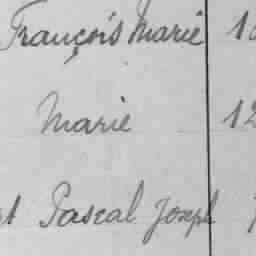 François Marie
Marie 12
Pascal Joseph